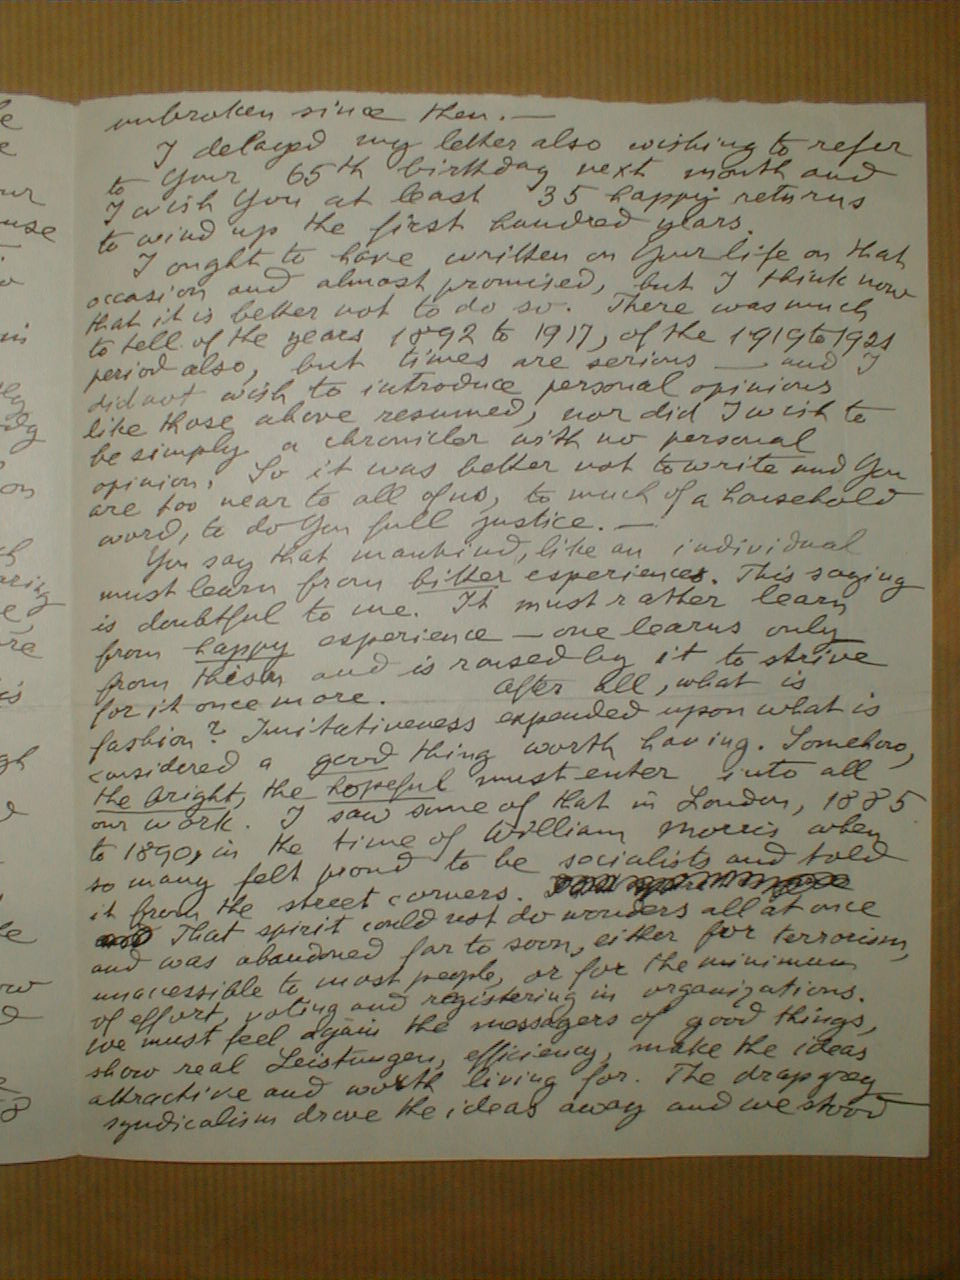 unbroken since then. —
I delayed my letter also wishing to refer
to Your 65th birthday next month and
I wish You at least 35 happy returns
to wind up the first hundred years.
I ought to have written on Your life on that
occasion and almost promised, but I think now
that it is better not to do so. There was much
to tell of the years 1892 to 1917, of the 1919 to 1921
period also, but times are serious — and I
did not wish to introduce personal opinions
like those above resumed, nor did I wish to
be simply a chronicler with no personal
opinion. So it was better not to write and You
are too near to all of us, to much of a household
word, to do You full justice. —
You say that mankind, like an individual
must learn from bitter experiences. This saying
is doubtful to me. It must rather learn
from happy experience — one learns only
from this and is raised by it to strive
for it once more. After all, what is
fashion? Imitativeness expended upon what is
considered a good thing worth having. Somehow,
the bright, the hopeful must enter into all
our work. I saw some of that in London, 1885
to 1890, in the time of William Morris when
so many felt proud to be socialists and told
it from the street corners.
That spirit could not do wonders all at once
and was abandoned far to soon, either for terrorism,
unaccessible to most people, or for the minimum
of effort, voting and registering in organizations.
We must feel again the messagers of good things,
show real Leistungen, efficiency, make the ideas
attractive and worth living for. The drap grey
syndicalism drove the ideas away and we stood